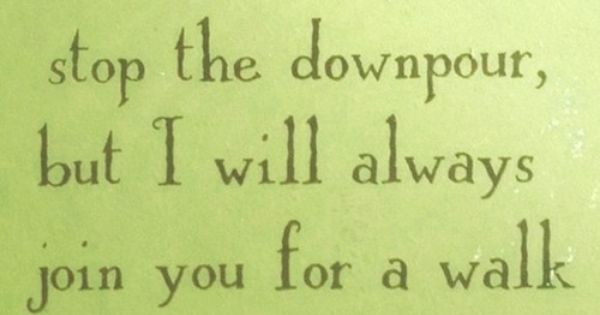 stop the downpour,
but I will always
join you for a walk